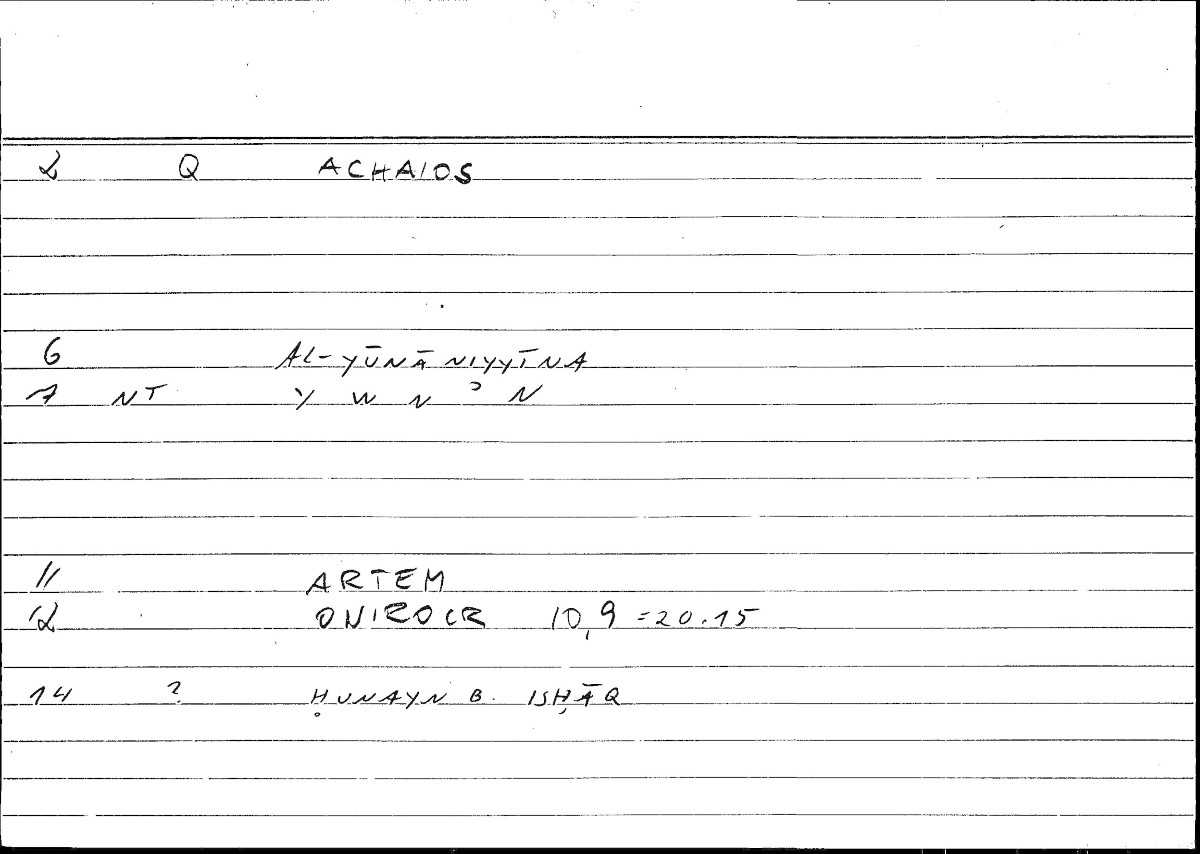 2 Q ACHAIOS
6 AL-YŪNĀNIYYĪNA
7 NT Y W N ʾ N
11 ARTEM
12 ONIROCR 10,9 =20.15
14 ? ḤUNAYN B. ISḤĀQ